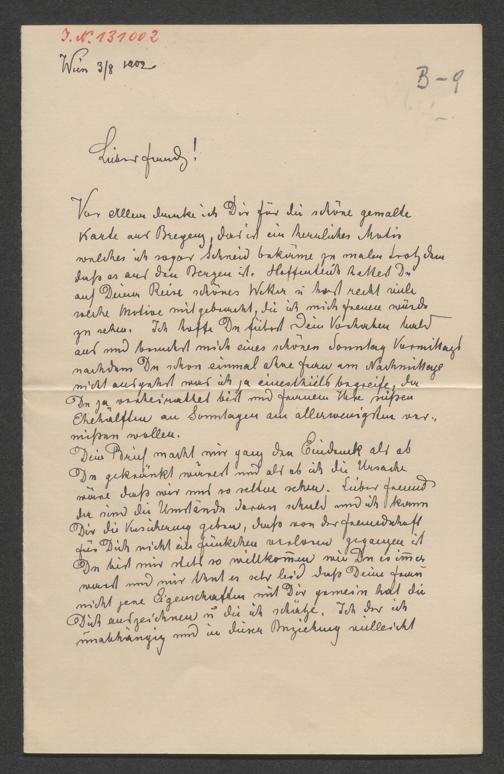 J. N. 131002
Wien 3/8 1902
B-9
Lieber Freund!
Vor Allem danke ich Dir für die schöne gemalte
Karte aus Bregenz, das ist ein herrliches Motiv
welches ich sogar Schneid bekäme zu malen trotzdem
daß es aus den Bergen ist. Hoffentlich hattest Du
auf Deiner Reise schönes Wetter u hast recht viele
solche Motive mitgebracht, die ich mich freuen würde
zu sehen. Ich hoffe Du führst Dein Vorhaben bald
aus und besuchst mich eines schönen Sonntag Vormittags
nachdem Du schon einmal ohne Frau am Nachmittage
nicht ausgehst was ich ja einestheils begreife, da
Du ja verheirathet bist und Frauen ihre süßen
Ehehälften an Sonntagen am allerwenigsten ver-
missen wollen.
Dein Brief macht mir ganz den Eindruck als ob
Du gekränkt wärest und als ob ich die Ursache
wäre daß wir uns so selten sehen. Lieber Freund
da sind die Umstände daran schuld und ich kann
Dir die Versicherung geben, daß von der Freundschaft
für Dich nicht ein Fünkchen verloren gegangen ist
Du bist mir stets so willkommen wie Du es immer
warst und mir thut es sehr leid daß Deine Frau
nicht jene Eigenschaften mit Dir gemein hat die
Dich auszeichnen u die ich schätze. Ich der ich
unabhängig und in dieser Beziehung vielleicht